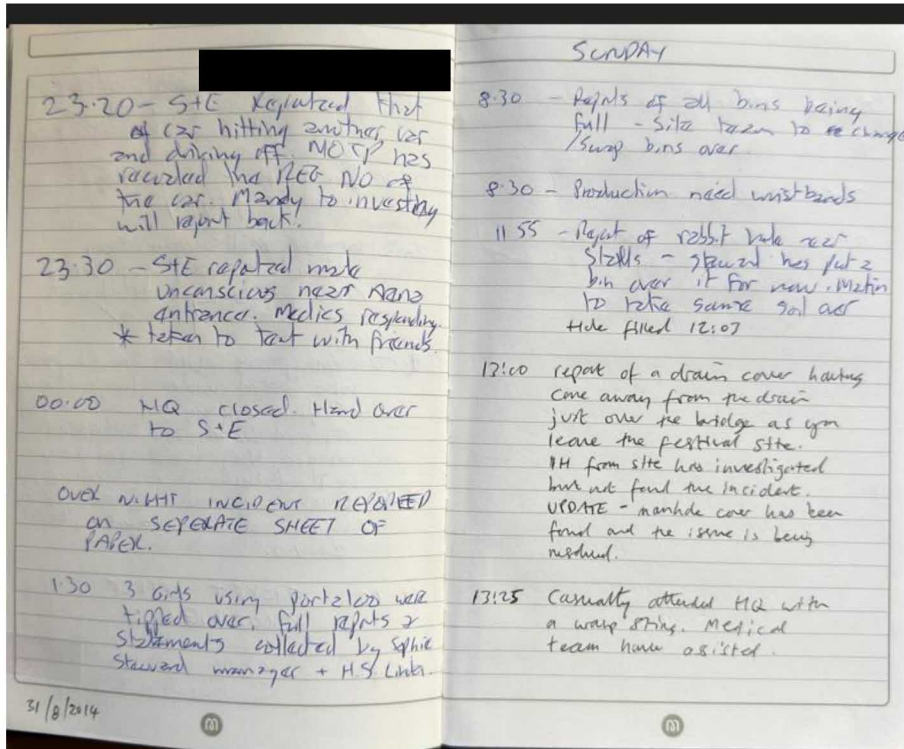 23.20 - S+E reported that
of car hitting another car
and driving off. MOTP has
recorded the REG NO of
the car. Mandy to investig
will report back.
23.30 - S+E reported male
unconscious near
entrance. Medics responding.
* taken to tent with friends.
00.00 HQ closed. Hand over
to S+E
OVER NIGHT INCIDENT REPORTED
on SEPERATE SHEET OF
PAPER.
1.30 3 Girls using portaloo were
tipped over. full reports &
Statements collected by Sophie
Steward manager + H.S
31/8/2014
SUNDAY
8.30 - Reports of all bins being
full - Site team to change
/Swap bins over
8.30 - Production need wristbands
11 55 - Report of rabbit hole near
Stalls - steward has put a
bin over it for now. Martin
to take some soil over
Hole filled 12:07
13:00 report of a drain cover having
come away from the drain
just over the bridge as you
leave the festival site.
IH from site has investigated
but not found the incident.
UPDATE - manhole cover has been
found and the issue is being
resolved.
13:25 Casualty attended HQ with
a wasp sting. Medical
team have assisted.